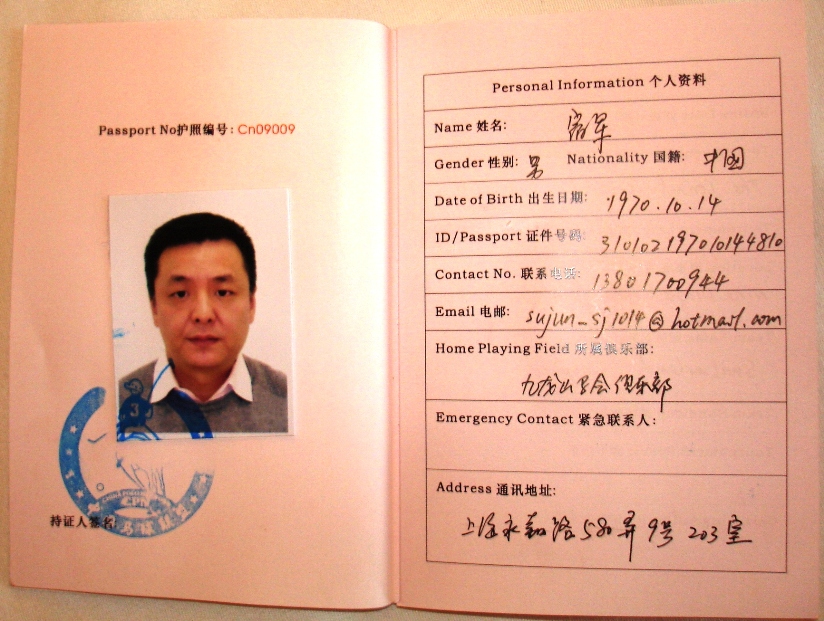 Passport No护照编号: Cn09009
持证人签名
Personal Information 个人资料
Name 姓名:
Gender 性别: 男 Nationality 国籍: 中国
Date of Birth 出生日期: 1970.10.14
ID/Passport 证件号码: 310102197010144810
Contact No. 联系电话: 13801700944
Email 电邮: sujun_sj1014@hotmail.com
Home Playing Field 所属俱乐部:
九龙山马会俱乐部
Emergency Contact 紧急联系人:
Address 通讯地址:
上海永嘉路580弄9号203室